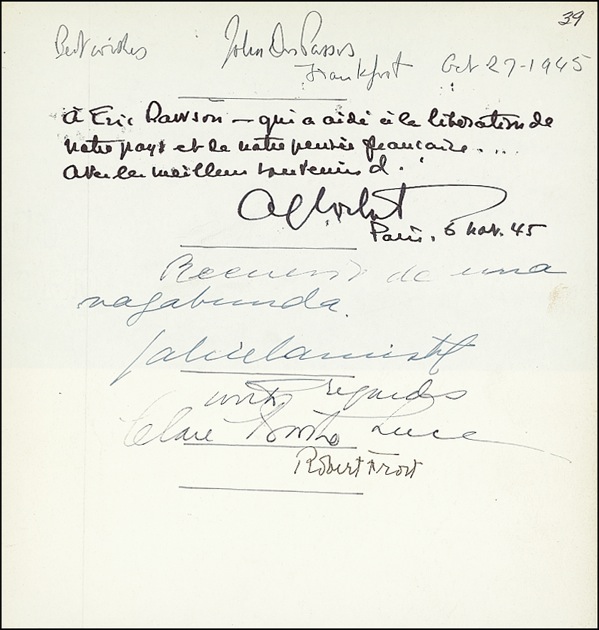 39
Best wishes John Dos Passos
Frankfort Oct 27-1945
à Eric Dawson – qui a aidé à la libération de
notre pays et de notre pensée française....
Avec les meilleurs souvenirs d.
Paris. 6 nov. 45
Recuerdo de una
vagabunda.
Gabriela Mistral
with regards
Clare Boothe Luce
Robert Frost